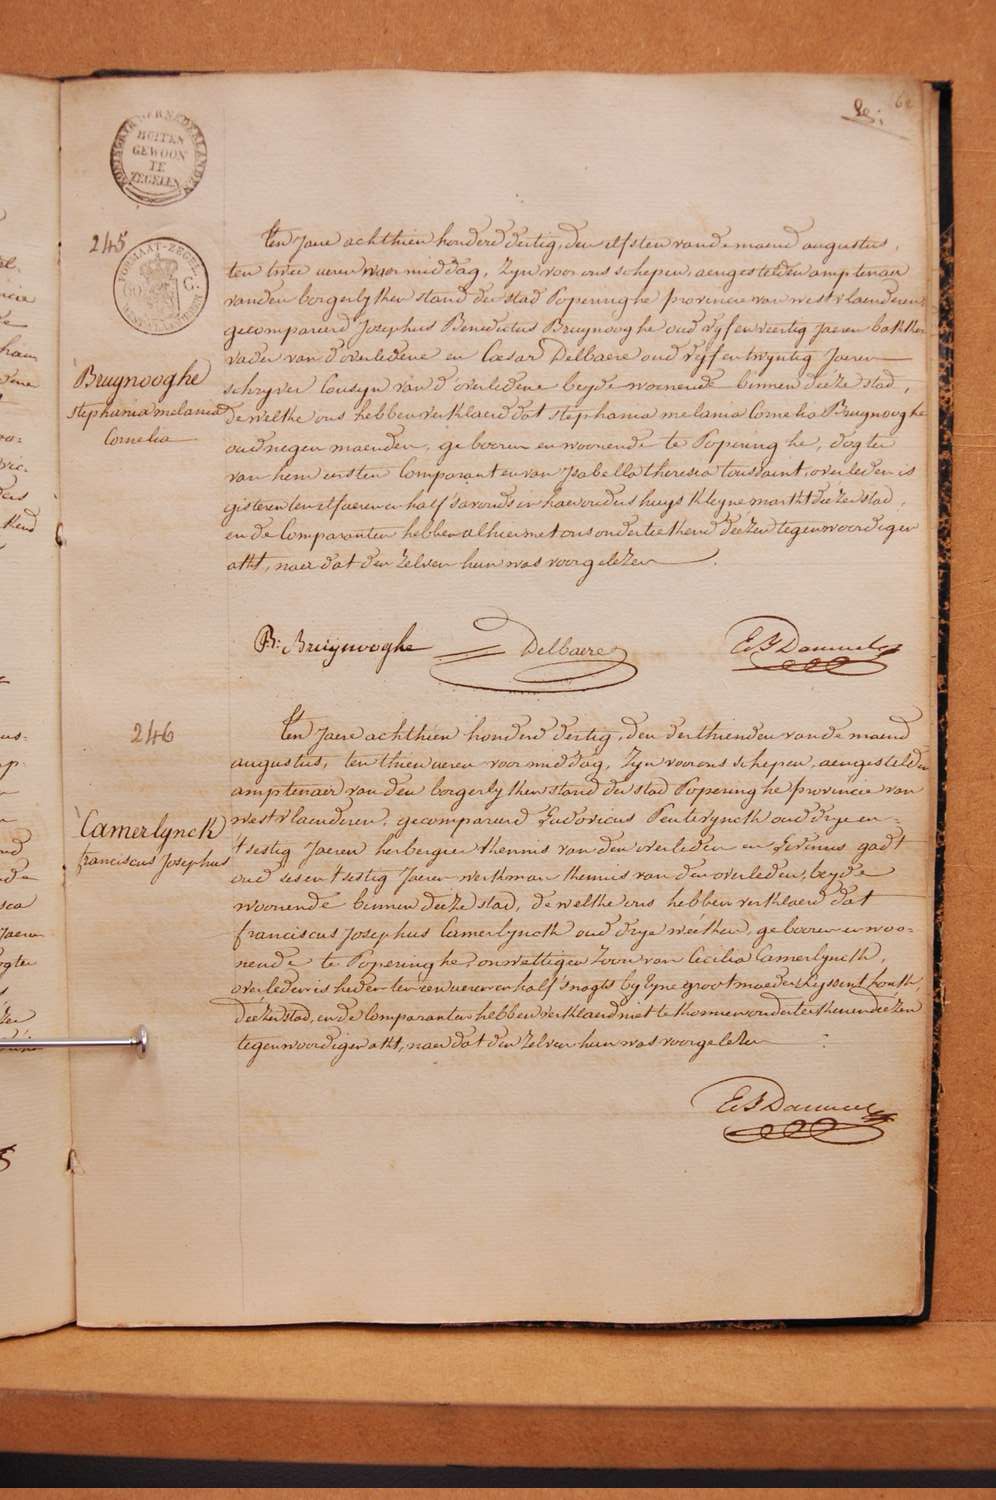 62
KONINGRYK DER NEDERLANDEN
BUITEN
GEWOON
TE
ZEGELEN
245
FORMAAT-ZEGEL
Bruynooghe
stephania melania
Cornelia
ten Jaere achthien honderd dertig, den elfsten van de maend augustus,
ten twee ueren naermiddag, Zyn voor ons schepen, aengestelden amptenaer
van den borgerlyken stand der stad Poperinghe provincie van westvlaenderen
gecompareerd Josephus Benedictus Bruynooghe oud vyf en veertig Jaeren bakker
vader van d'overledene en Cæsar Delbaere oud vyf en twyntig Jaeren
schryver Cousyn van d'overledene beyde woonende binnen deeze stad,
de welke ons hebben verklaerd dat stephania melania Cornelia Bruynooghe
oud negen maenden, gebooren en woonende te Poperinghe, dogter
van hem eersten Comparant en van Isabella theresia toussaint, overleden is
gisteren ten elf ueren en half s'avonds in haer ouders huys kleyne markt deezer stad,
en de Comparanten hebben alhier met ons onderteekend deezen tegenwoordigen
akt, naer dat den zelven hun was voorgelezen
B: Bruijnooghe Delbaere
246
Camerlynck
franciscus Josephus
ten Jaere achthien honderd dertig, den derthienden van de maend
augustus, ten thien ueren voormiddag, Zyn voor ons schepen, aengestelden
amptenaer van den borgerlyken stand der stad Poperinghe provincie van
westvlaenderen, gecompareerd Ludovicus Peuterynck oud drye en
t'sestig Jaeren herbergier kennis van den overleden en Livinus gadt
oud ses en t'sestig Jaeren werkman kennis van den overleden, beyde
woonende binnen deeze stad, de welke ons hebben verklaerd dat
franciscus Josephus Camerlynck oud drye weéken, gebooren en woo-
nende te Poperinghe, onwettigen Zoon van Cecilia Camerlynck,
overleden is heden ten een ueren en half s'naghts by Zyne grootmoeder thyssent houk,
deézer stad, en de Comparanten hebben verklaerd niet te konnen onderteekenen deézen
tegenwoordigen akt, naer dat den zelven hun was voorgelezen